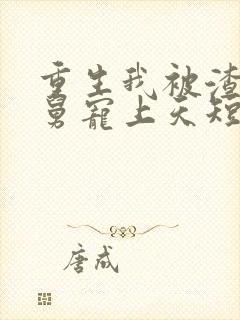 重生我被渣
舅宠上天短
唐成